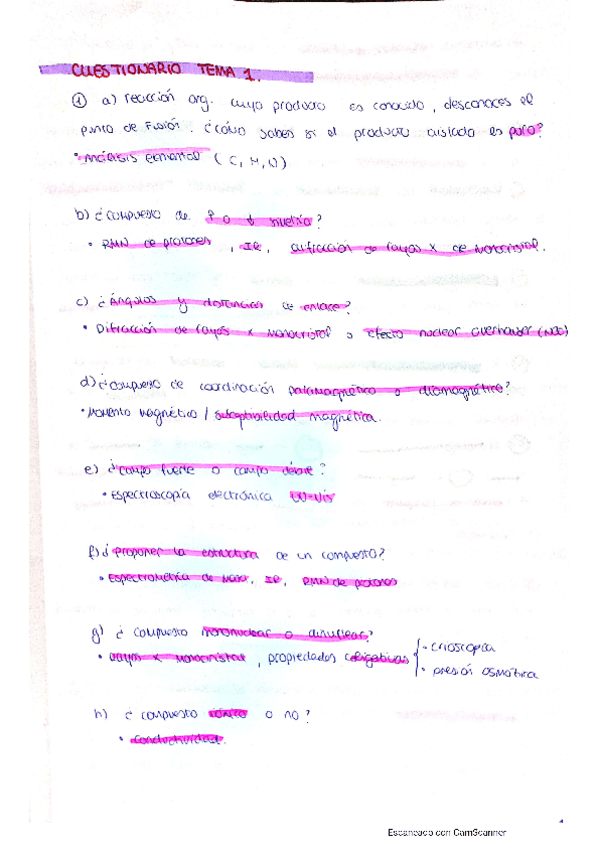 CUESTIONARIO TEMA 1.
① a) reacción org. cuyo producto es conocido, desconoces el
punto de fusión. ¿cómo sabes si el producto aislado es puro?
• Análisis elemental (C, H, N)
b) ¿compuesto de simetría?
• RMN de protones, IR, difracción de rayos X de monocristal.
c) ¿Ángulos y distancias de enlace?
• Difracción de rayos X monocristal o efecto nuclear overhauser (NOE)
d) ¿compuesto de coordinación paramagnético o diamagnético?
• Momento magnético / susceptibilidad magnética.
e) ¿campo fuerte o campo débil?
• Espectroscopía electrónica UV-Vis
f) ¿proponer la estructura de un compuesto?
• Espectrometría de masa, IR, RMN de protones
g) ¿compuesto mononuclear o dinuclear?
• rayos X monocristal, propiedades coligativas
• crioscopía
• presión osmótica
h) ¿compuesto iónico o no?
• conductividad.
Escaneado con CamScanner